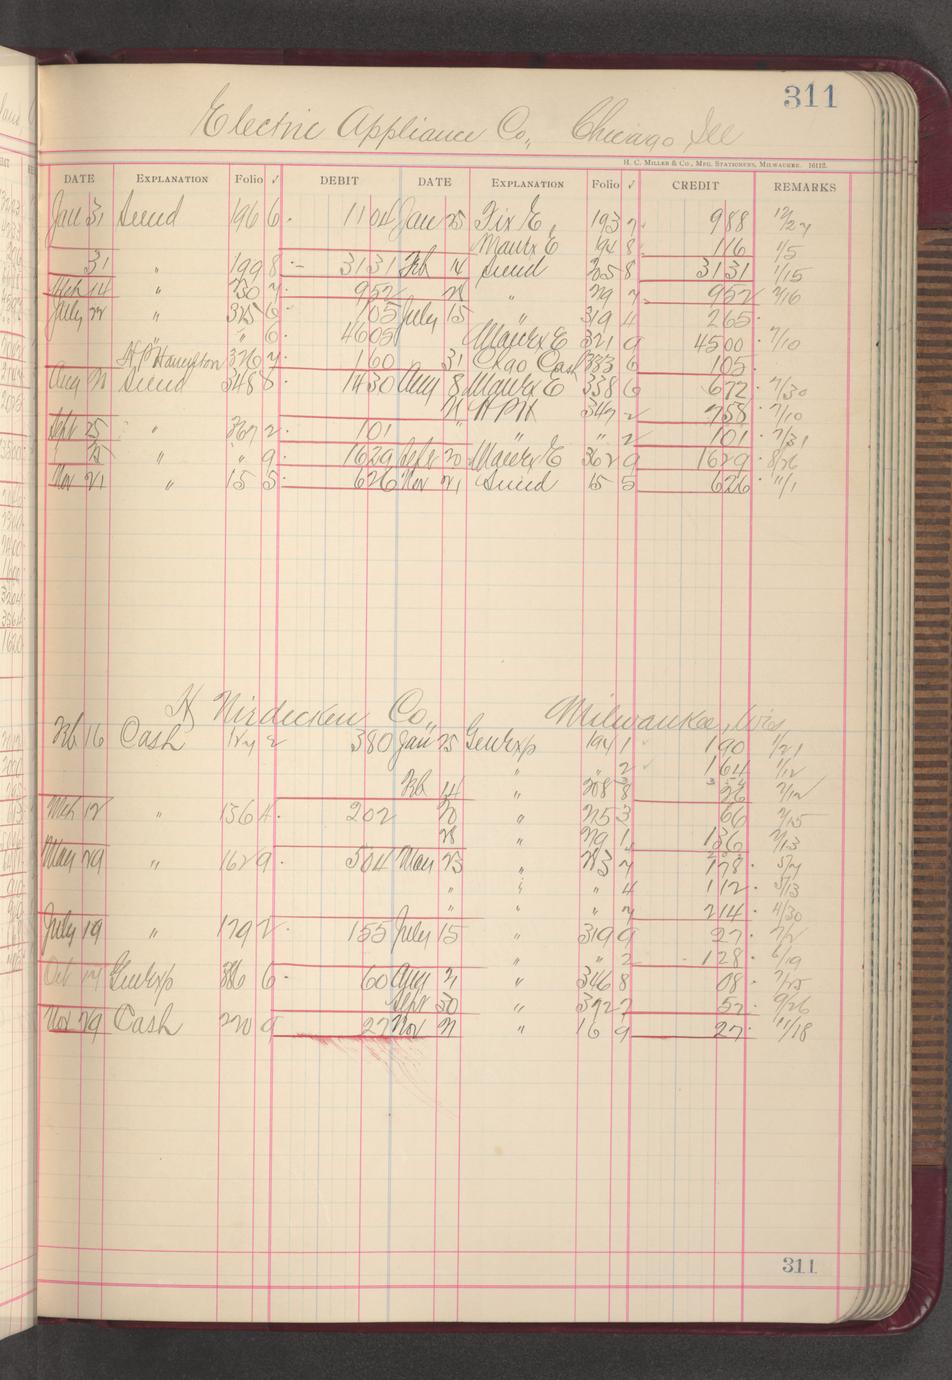 311
Electric Appliance Co., Chicago Ill
H. C. Miller & Co., Mfg. Stationers, Milwaukee. 16112.
DATE EXPLANATION Folio √ DEBIT DATE EXPLANATION Folio √ CREDIT REMARKS
Jan 31 Sund 196 6 1104 Jan 25 Fix E. 193 7 988 12/27
Maux E 194 8 116 1/5
31 " 199 8 3131 Feb 14 Sund 205 8 3131 1/15
Mch 14 " 230 7 952 28 " 219 7 952 2/16
July 22 " 325 6 705 July 15 " 319 4 265
" " 6 4605 Maux E 321 9 4500 7/10
H P Hamilton 326 7 160 31 Chgo Cash 333 6 105
Aug 21 Sund 348 8 1430 Aug 8 Maux E 338 6 672 7/30
21 H P H 347 2 758 7/10
Sept 25 " 367 2 101 " " " 2 101 7/31
" " 9 1629 Sept 20 Maux E 362 9 1629 8/26
Nov 21 " 15 5 626 Nov 21 Sund 15 5 626 11/1
Co., Milwaukee, Wis
Feb 16 Cash 380 Jan 25 Gen Exp 194 1 190 1/21
" " 2 164 1/12
Feb 14 " 208 8 26 2/12
Mch 12 " 156 4 202 20 " 215 3 66 2/15
28 " 219 1 136 2/13
May 29 " 162 9 504 May 23 " 283 7 178 5/7
" " " 4 112 5/13
" " " 7 214 4/30
July 19 " 179 2 155 July 15 " 319 9 27 7/2
" " 2 128 6/19
Oct 14 Gen Exp 386 6 60 Aug 21 " 346 8 08 7/25
Sept 30 " 372 7 52 9/26
Nov 29 Cash 220 9 27 Nov 21 " 16 9 27 11/18
311